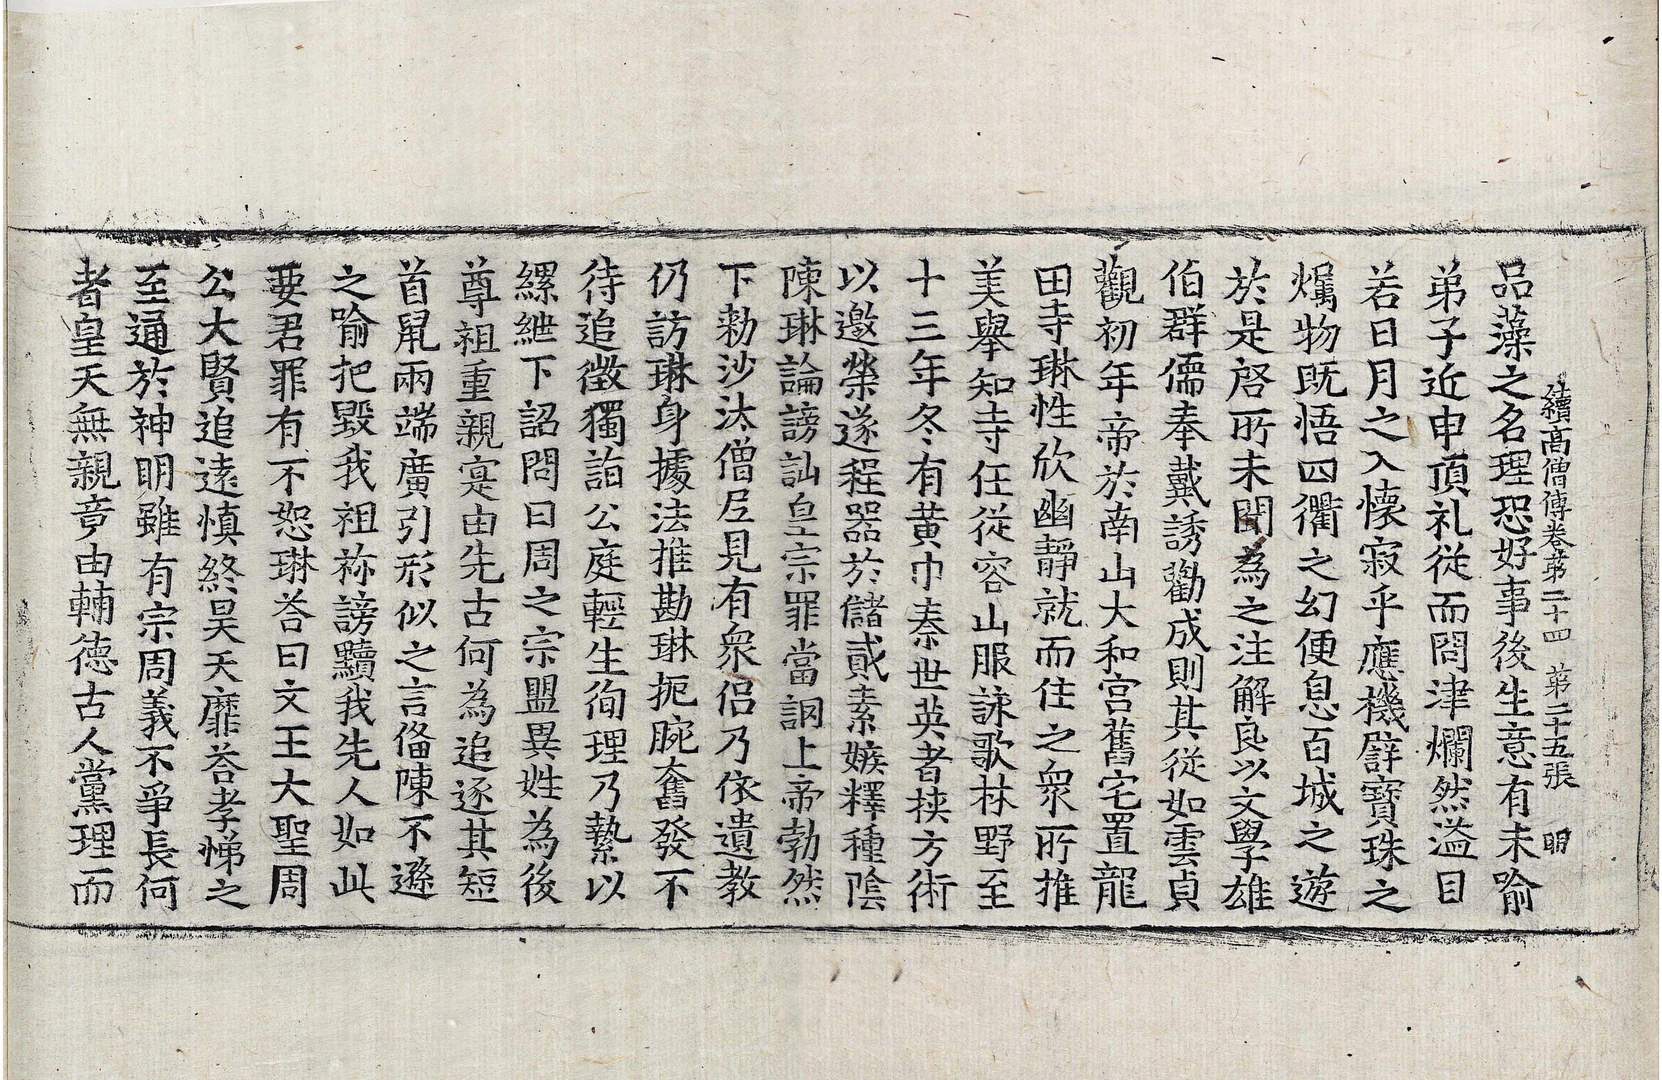 續高僧傳卷第二十四　第二十五張　明
品藻之名理恐好事後生意有未喻
弟子近申頂礼從而問津爛然溢目
若日月之入懷寂乎應機譬寶珠之
燭物既悟四衢之幻便息百城之遊
於是啓所未聞為之注解良以文學雄
伯群儒奉戴誘勸成則其從如雲貞
觀初年帝於南山大和宮舊宅置龍
田寺琳性欣幽靜就而住之衆所推
美舉知寺任從容山服詠歌林野至
十三年冬有黃巾秦世英者挾方術
以邀榮遂程器於儲貳素嫉釋種陰
陳琳論謗訕皇宗罪當詷上帝勃然
下勑沙汰僧尼見有衆侶乃依遺教
仍訪琳身據法推勘琳扼腕奮發不
待追徵獨詣公庭輕生徇理乃縶以
縲紲下詔問曰周之宗盟異姓為後
尊祖重親寔由先古何為追逐其短
首鼠兩端廣引形似之言俻陳不遜
之喻把毀我祖祢謗黷我先人如此
要君罪有不恕琳荅曰文王大聖周
公大賢追遠慎終昊天靡荅孝悌之
至通於神明雖有宗周義不爭長何
者皇天無親竟由輔德古人黨理而